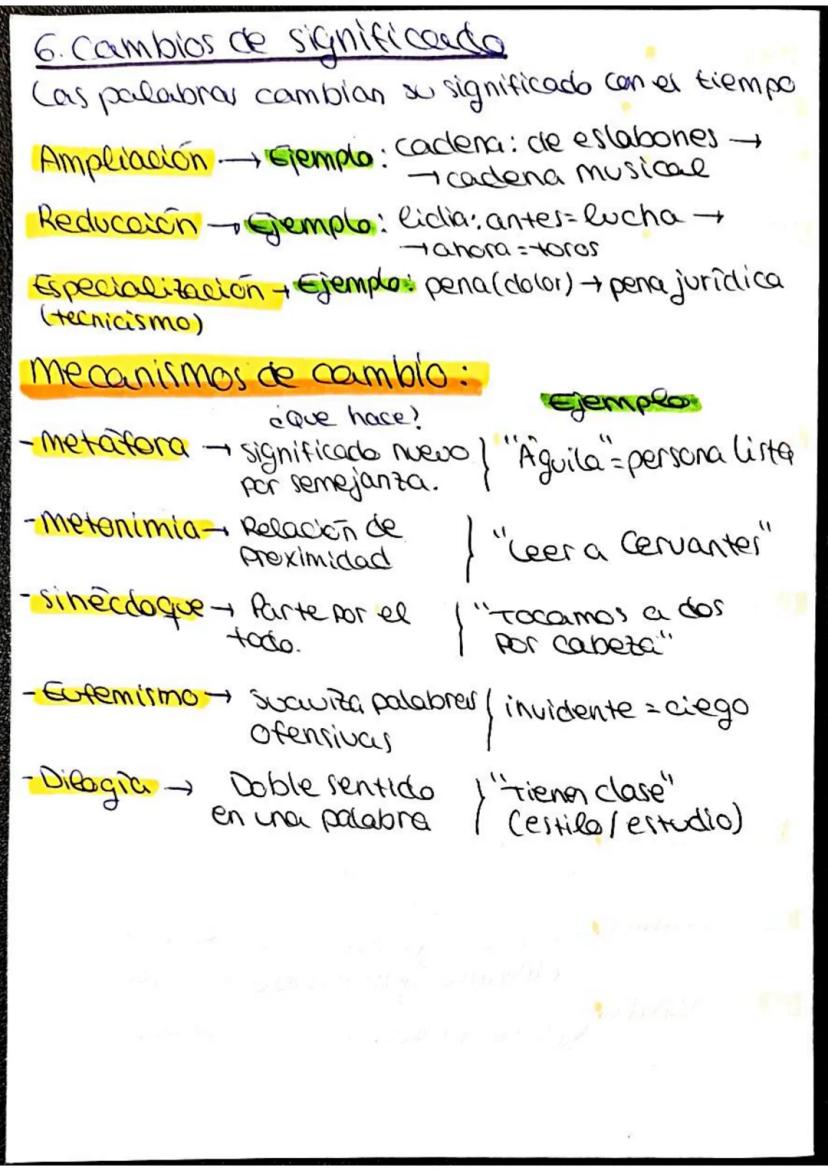 6. Cambios de significado
Las palabras cambian su significado con el tiempo
Ampliación → Ejemplo: cadena: de eslabones →
→ cadena musical
Reducción → Ejemplo: lidia: antes = lucha →
→ ahora = toros
Especialización → Ejemplo: pena (dolor) → pena jurídica
(tecnicismo)
Mecanismos de cambio:
Ejemplo
¿Que hace?
- Metáfora → significado nuevo } "Águila" = persona lista
por semejanza.
- Metonimia → Relación de } "Leer a Cervantes"
proximidad
- Sinécdoque → Parte por el } "Tocamos a dos
todo. por cabeza"
- Eufemismo → suaviza palabras { invidente = ciego
ofensivas
- Dilogía → Doble sentido } "Tienen clase"
en una palabra (estilo / estudio)